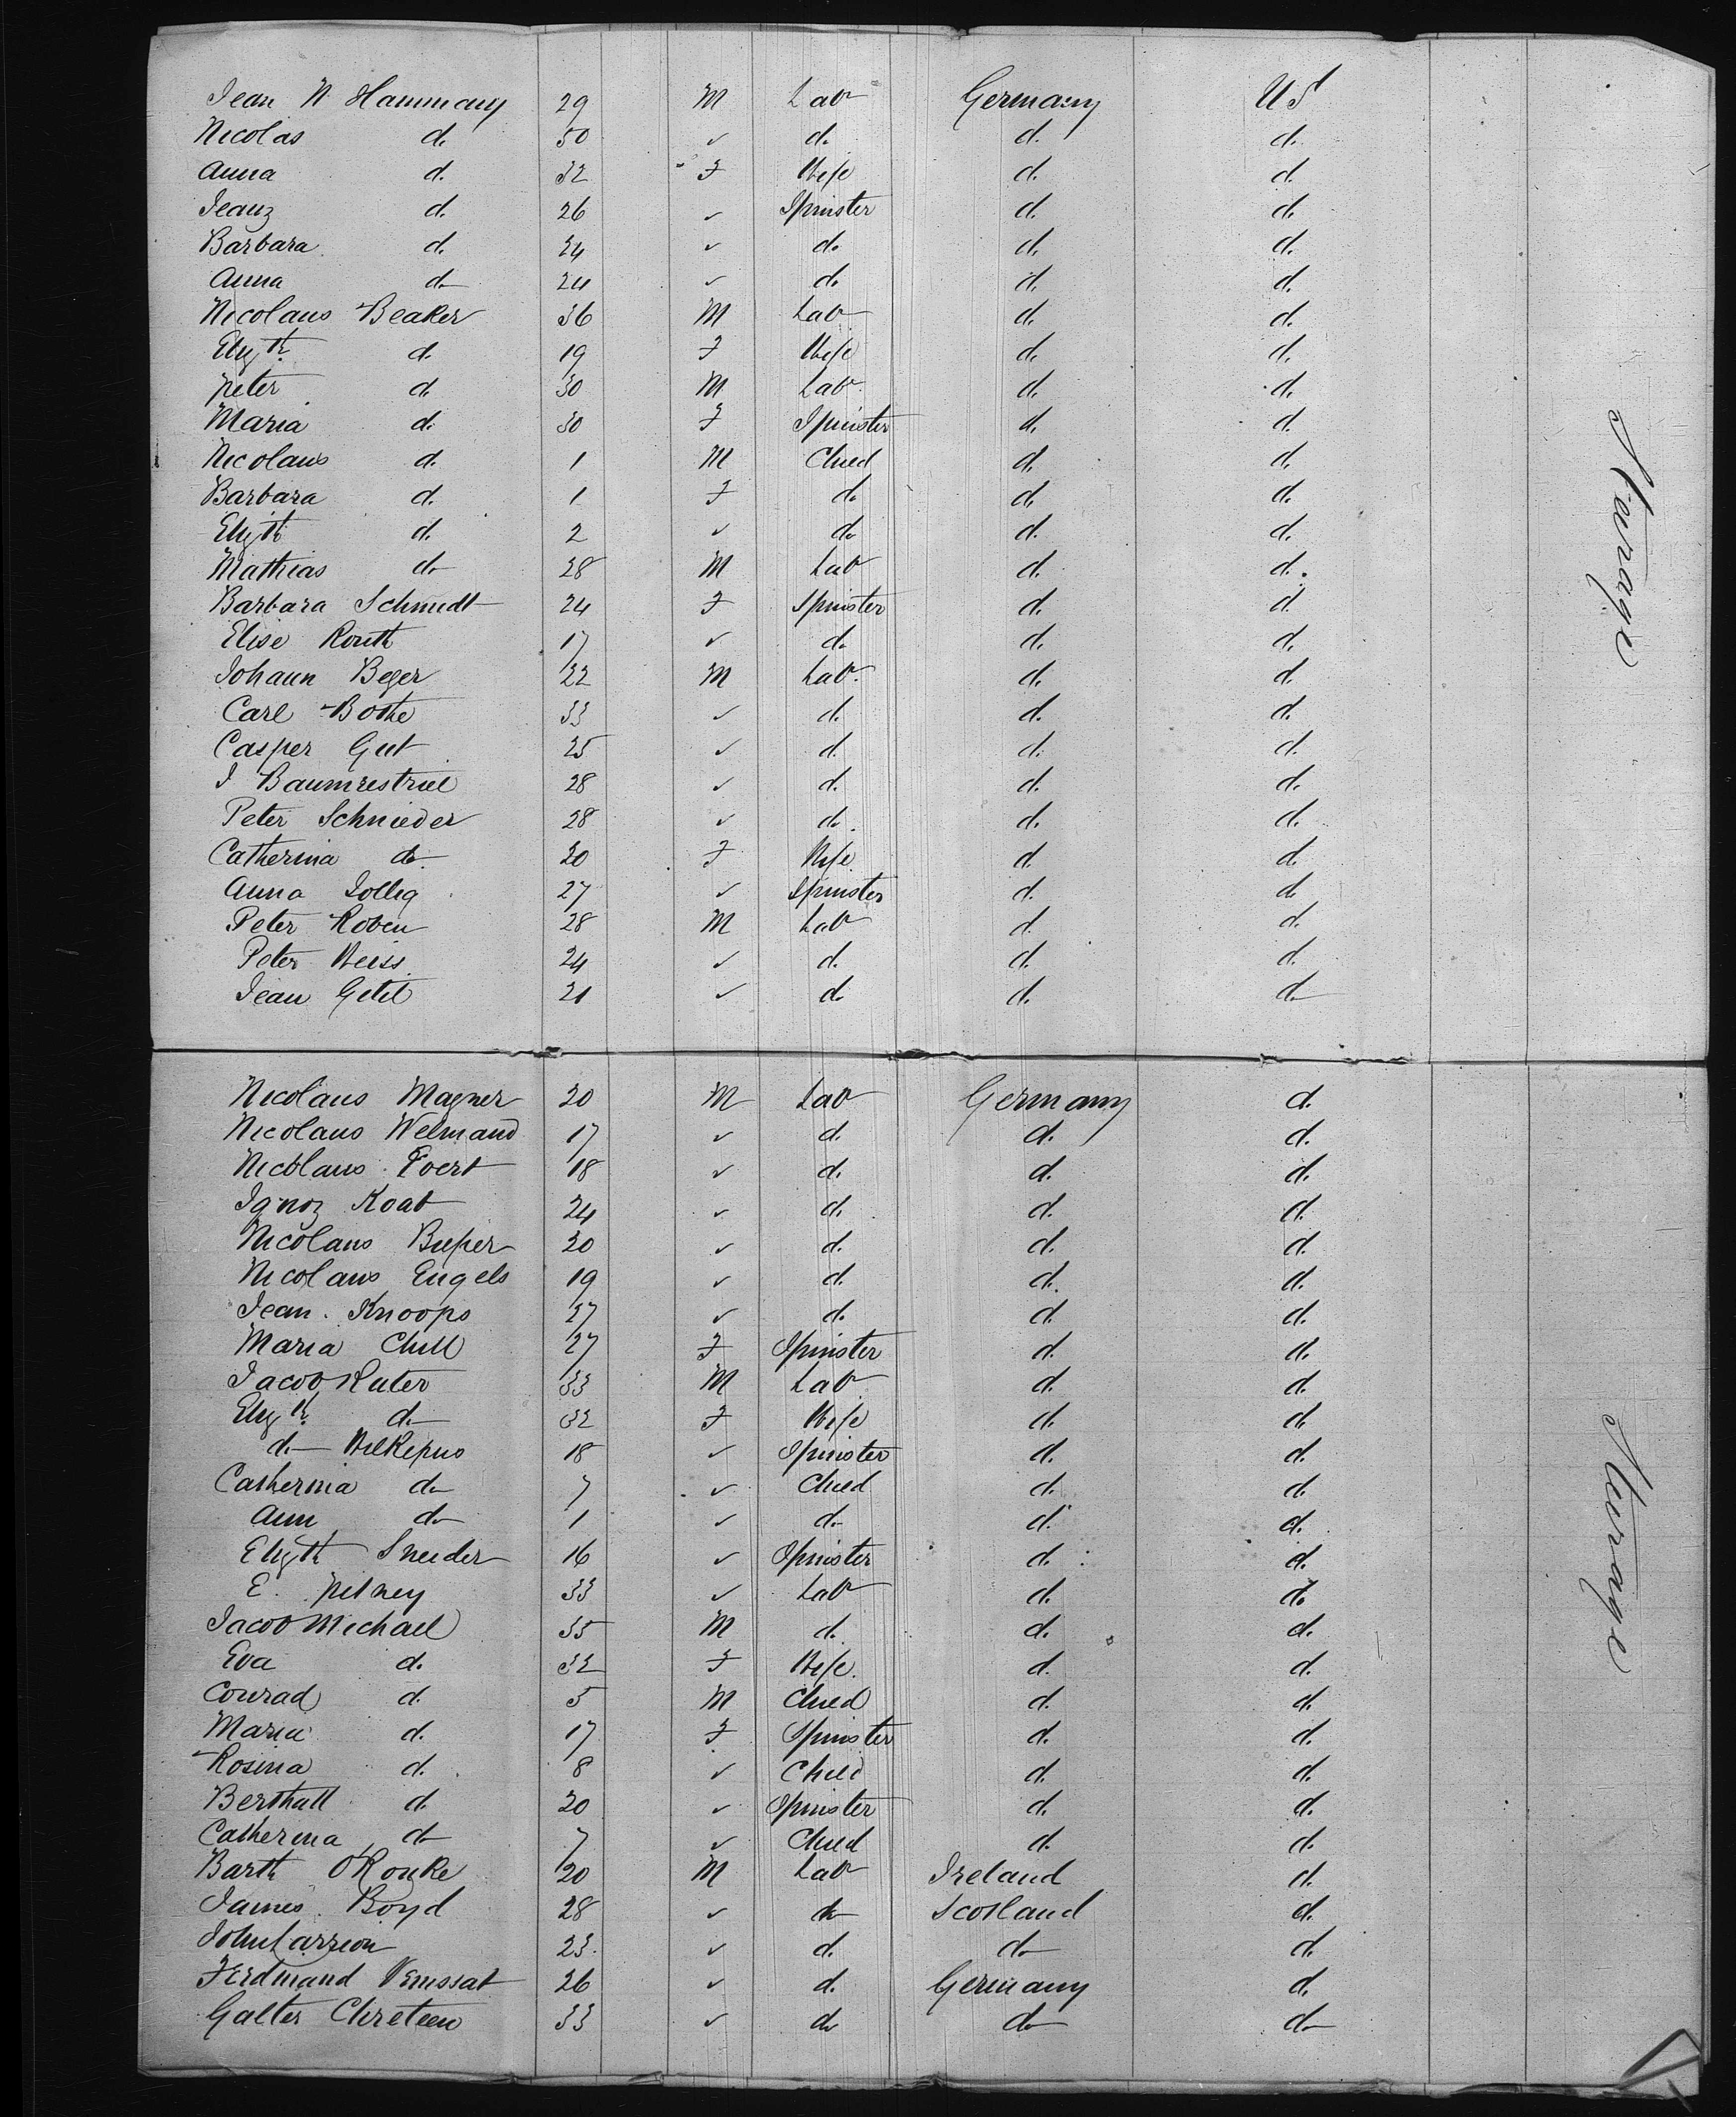 Jean N Hammany 29 M Lab Germany US
Nicolas d. 30 ✓ d. d. d.
Anna d. 32 F Wife d. d.
Jeanz d. 26 ✓ Spinster d. d.
Barbara d. 24 ✓ do d. d.
Anna d. 24 ✓ d. d. d.
Nicolaus Beaker 36 M Lab d. d.
Elizth d. 19 F Wife d. d.
Peter d. 30 M Lab d. d.
Maria d. 30 F Spinster d. d.
Nicolaus d. 1 M Child d. d.
Barbara d. 1 F d. d. d.
Elizth d. 2 ✓ do d. d.
Mathias do 28 M Lab d. d.
Barbara Schmidt 24 F Spinster d. d.
Elise Routh 17 ✓ d. d. d.
Johann Beger 22 M Lab. d. d.
Carl Bothe 33 ✓ d. d. d.
Casper Gut 25 ✓ d. d. d.
J 28 ✓ d. d. d.
Peter Schnieder 28 ✓ d. d. d.
Catherina do 20 F Wife d. d.
Anna Zollig 27 ✓ Spinster d. d.
Peter Roben 28 M Lab d. d.
Peter Weiss 24 ✓ d. d. d.
Jean Getil 21 ✓ d. d. d.
Steerage
Nicolaus Magner 20 M Lab Germany d.
Nicolaus Welmand 17 ✓ d. d. d.
Nicolaus 18 ✓ d. d. d.
Ignoz Koab 24 ✓ d. d. d.
Nicolaus 20 ✓ d. d. d.
Nicolaus Engels 19 ✓ d. d. d.
Jean Knoops 27 ✓ d. d. d.
Maria Chill 27 F Spinster d. d.
Jacob Ruter 33 M Lab d. d.
Elizth d. 32 F Wife d. d.
d. 18 ✓ Spinster d. d.
Catherina d. 7 ✓ Child d. d.
Ann d. 1 ✓ d. d. d.
Elizth Sneider 16 ✓ Spinster d. d.
E. 33 ✓ Lab d. d.
Jacob Michael 35 M d. d. d.
Eva d. 32 F Wife. d. d.
Conrad d. 5 M Child d. d.
Maria d. 17 F Spinster d. d.
Rosina d. 8 ✓ Child d. d.
Berthall d. 20 ✓ Spinster d. d.
Catherina d. 7 ✓ Child d. d.
Barth O'Rouke 20 M Lab Ireland d.
James Boyd 28 ✓ do Scotland d.
John Carrion 23. ✓ d. do d.
Ferdinand 26 ✓ d. Germany d.
Galter Chreteen 33 ✓ do do do
Steerage